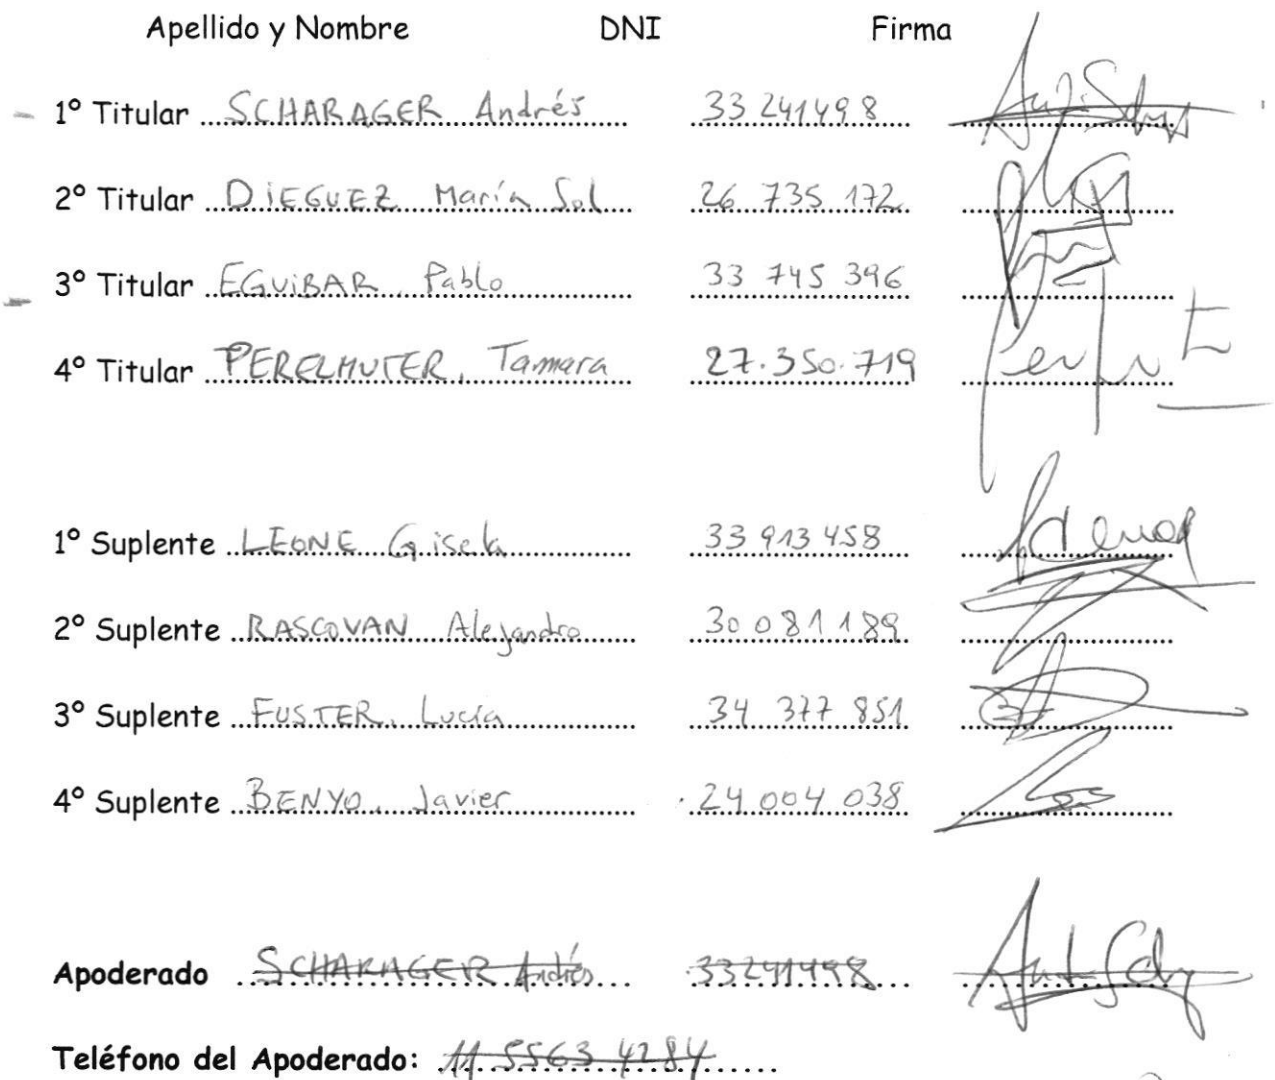 Apellido y Nombre DNI Firma
1º Titular SCHARAGER Andrés 33 241498
2º Titular DIEGUEZ María Sol 26 735 172
3º Titular EGUIBAR, Pablo 33 745 396
4º Titular PERELMUTER, Tamara 27.350.719
1º Suplente LEONE Gisela 33 913 458
2º Suplente RASCOVAN Alejandro 30 081 189
3º Suplente FUSTER, Lucía 34 377 851
4º Suplente BENYO, Javier 24 004 038
Apoderado SCHARAGER Andrés 33241498
Teléfono del Apoderado: 11 5563 4284